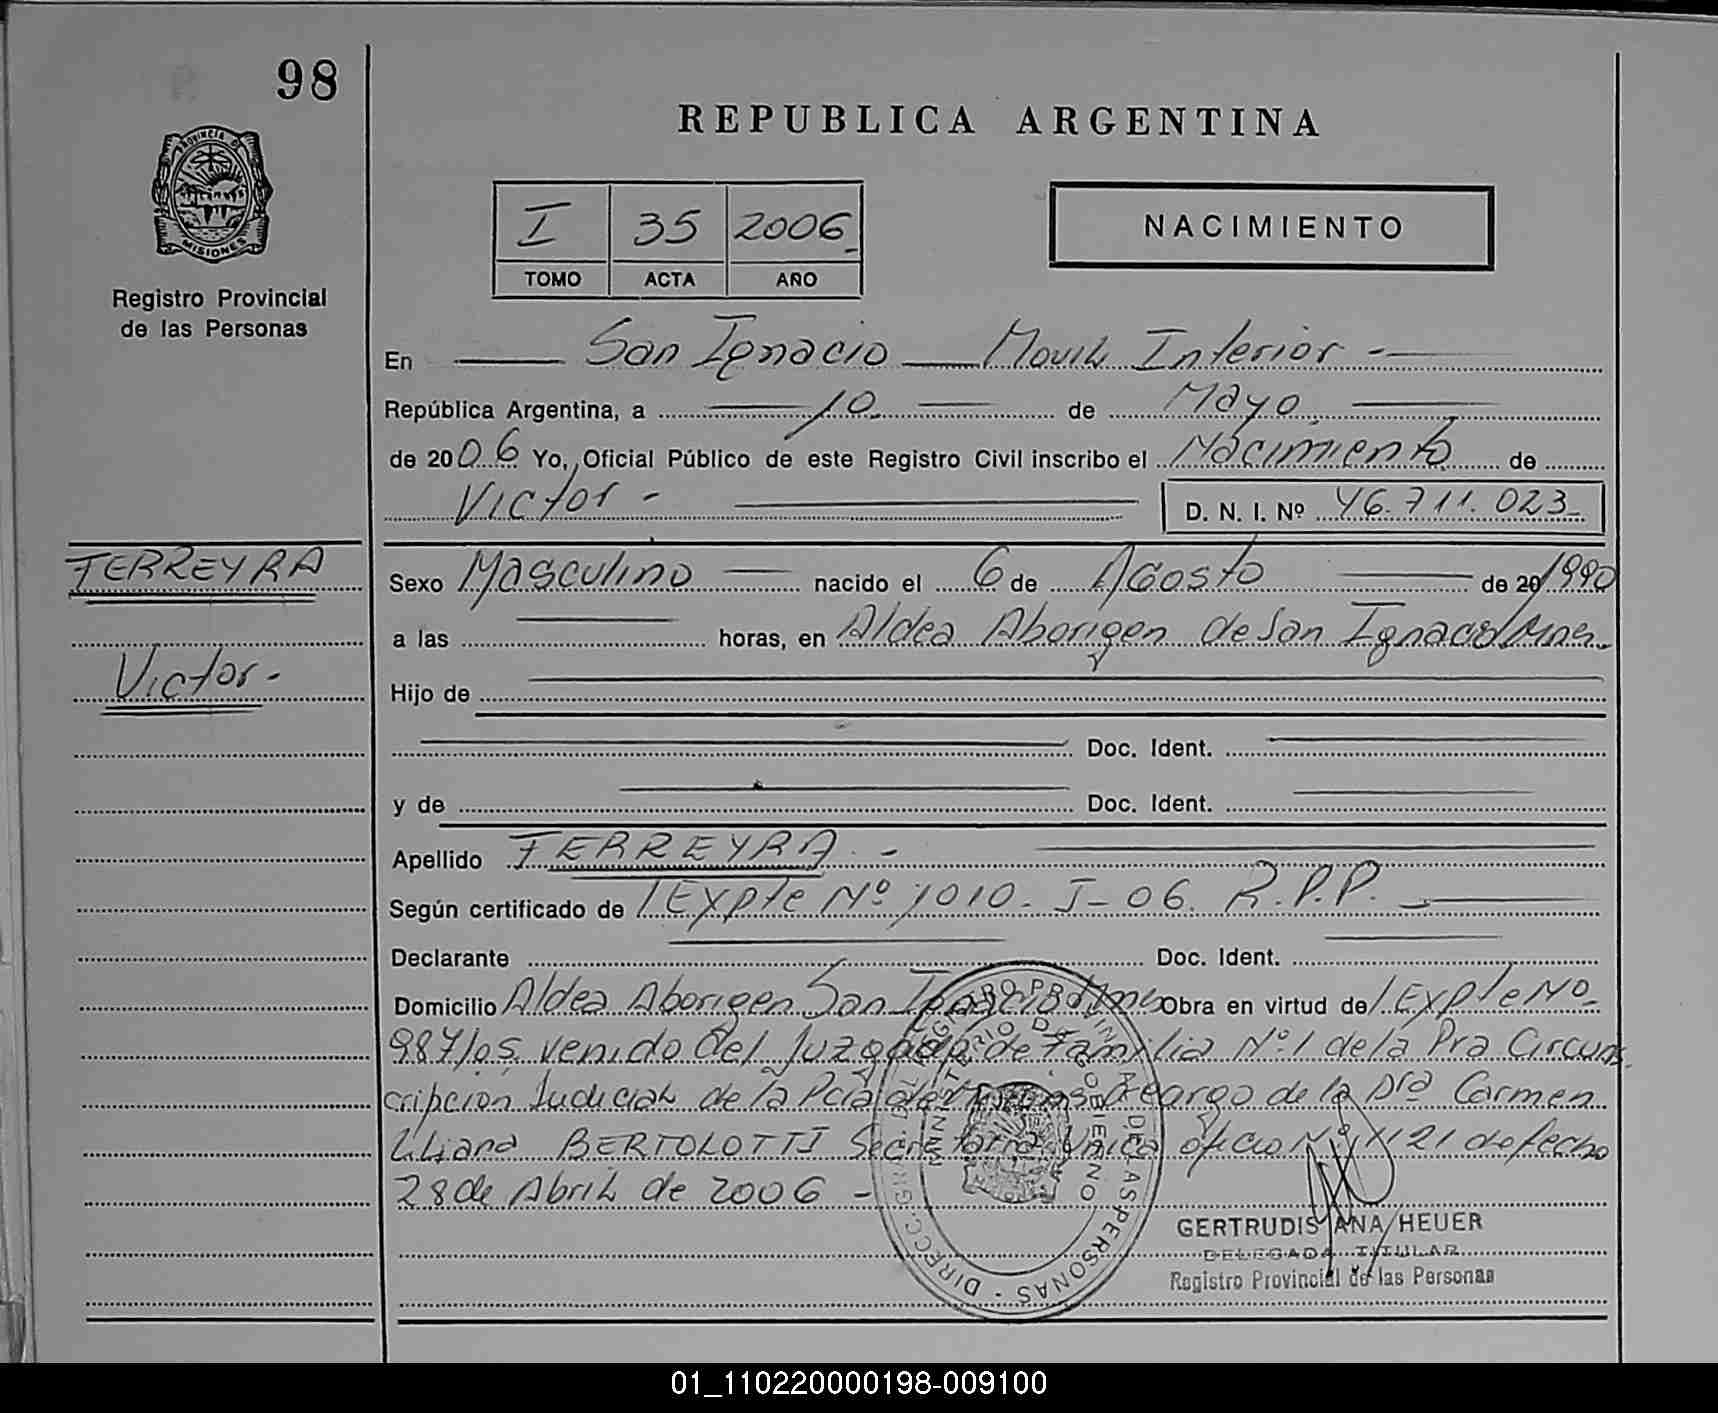 98
PROVINCIA DE
MISIONES
Registro Provincial
de las Personas
REPUBLICA ARGENTINA
I 35 2006
TOMO ACTA AÑO
NACIMIENTO
En San Ignacio Movil Interior -
República Argentina, a 10 de Mayo
de 2006 Yo, Oficial Público de este Registro Civil inscribo el Nacimiento de
Victor - D. N. I. Nº 46.711.023
FERREYRA
Victor -
Sexo Masculino nacido el 6 de Agosto de 20/1990
a las horas, en Aldea Aborigen de San Ignacio
Hijo de
Doc. Ident.
y de Doc. Ident.
Apellido FERREYRA -
Según certificado de Expte Nº 1010 - J - 06. R.P.P.
Declarante Doc. Ident.
Domicilio Aldea Aborigen San Ignacio Obra en virtud de Expte Nº
987/05 venido del Juzgado de Familia Nº 1 de la Pra Circuns
cripcion Judicial de la Pcia de a cargo de la Dra Carmen
Liliana BERTOLOTTI Secretaria Unica oficio Nº 1121 de fecha
28 de Abril de 2006 -
DIRECC. GRAL. DEL REGISTRO PROVINCIAL DE LAS PERSONAS -
MINISTERIO DE GOBIERNO
GERTRUDIS ANA HEUER
DELEGADA TITULAR
Registro Provincial de las Personas
01_110220000198-009100